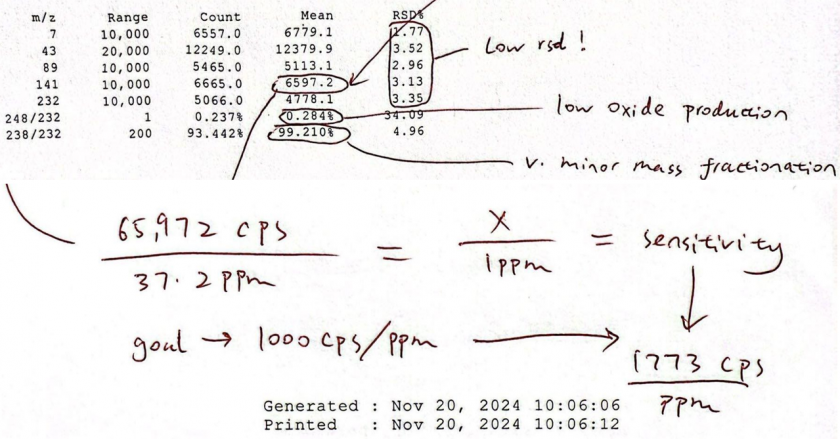 m/z Range Count Mean RSD%
7 10,000 6557.0 6779.1 1.77
43 20,000 12249.0 12379.9 3.52
89 10,000 5465.0 5113.1 2.96
141 10,000 6665.0 6597.2 3.13
232 10,000 5066.0 4778.1 3.35
248/232 1 0.237% 0.284% 34.09
238/232 200 93.442% 99.210% 4.96
Low rsd !
low oxide production
v. minor mass fractionation
65,972 cps / 37.2 ppm = X / 1ppm = sensitivity
goal → 1000 cps/ppm → 1773 cps / ppm
Generated : Nov 20, 2024 10:06:06
Printed : Nov 20, 2024 10:06:12